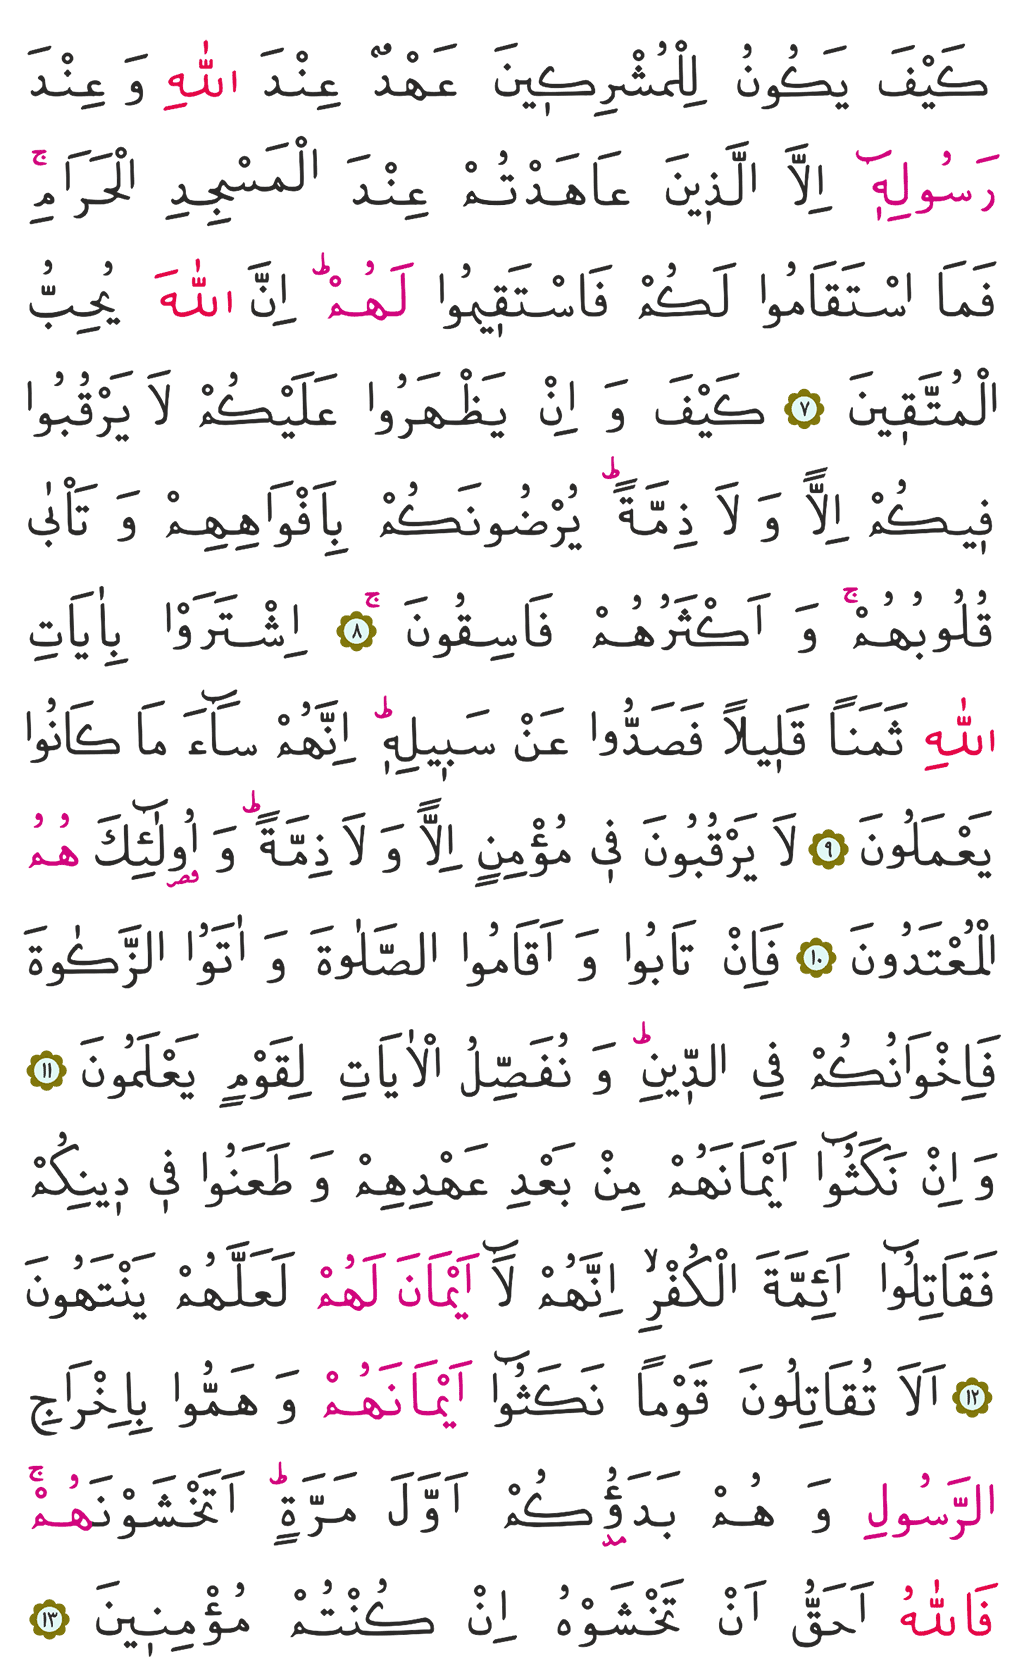 كَيْفَ يَكُونُ لِلْمُشْرِكٖينَ عَهْدٌ عِنْدَ اللّٰهِ وَ عِنْدَ
رَسُولِهٖٓ اِلَّا الَّذٖينَ عَاهَدْتُمْ عِنْدَ الْمَسْجِدِ الْحَرَامِۚ
فَمَا اسْتَقَامُوا لَكُمْ فَاسْتَقٖيمُوا لَهُمْؕ اِنَّ اللّٰهَ يُحِبُّ
الْمُتَّقٖينَ ﴿٧﴾ كَيْفَ وَ اِنْ يَظْهَرُوا عَلَيْكُمْ لَا يَرْقُبُوا
فٖيكُمْ اِلًّا وَ لَا ذِمَّةًؕ يُرْضُونَكُمْ بِاَفْوَاهِهِمْ وَ تَأْبٰى
قُلُوبُهُمْۚ وَ اَكْثَرُهُمْ فَاسِقُونَۚ ﴿٨﴾ اِشْتَرَوْا بِاٰيَاتِ
اللّٰهِ ثَمَنًا قَلٖيلًا فَصَدُّوا عَنْ سَبٖيلِهٖؕ اِنَّهُمْ سَٓاءَ مَا كَانُوا
يَعْمَلُونَ ﴿٩﴾ لَا يَرْقُبُونَ فٖى مُؤْمِنٍ اِلًّا وَ لَا ذِمَّةًؕ وَ اُولٰٓئِكَ هُمُ
الْمُعْتَدُونَ ﴿١٠﴾ فَاِنْ تَابُوا وَ اَقَامُوا الصَّلٰوةَ وَ اٰتَوُا الزَّكٰوةَ
فَاِخْوَانُكُمْ فِى الدّٖينِؕ وَ نُفَصِّلُ الْاٰيَاتِ لِقَوْمٍ يَعْلَمُونَ ﴿١١﴾
وَ اِنْ نَكَثُٓوا اَيْمَانَهُمْ مِنْ بَعْدِ عَهْدِهِمْ وَ طَعَنُوا فٖى دٖينِكُمْ
فَقَاتِلُٓوا اَئِمَّةَ الْكُفْرِۙ اِنَّهُمْ لَٓا اَيْمَانَ لَهُمْ لَعَلَّهُمْ يَنْتَهُونَ
﴿١٢﴾ اَلَا تُقَاتِلُونَ قَوْمًا نَكَثُٓوا اَيْمَانَهُمْ وَ هَمُّوا بِاِخْرَاجِ
الرَّسُولِ وَ هُمْ بَدَؤُكُمْ اَوَّلَ مَرَّةٍؕ اَتَخْشَوْنَهُمْۚ
فَاللّٰهُ اَحَقُّ اَنْ تَخْشَوْهُ اِنْ كُنْتُمْ مُؤْمِنٖينَ ﴿١٣﴾